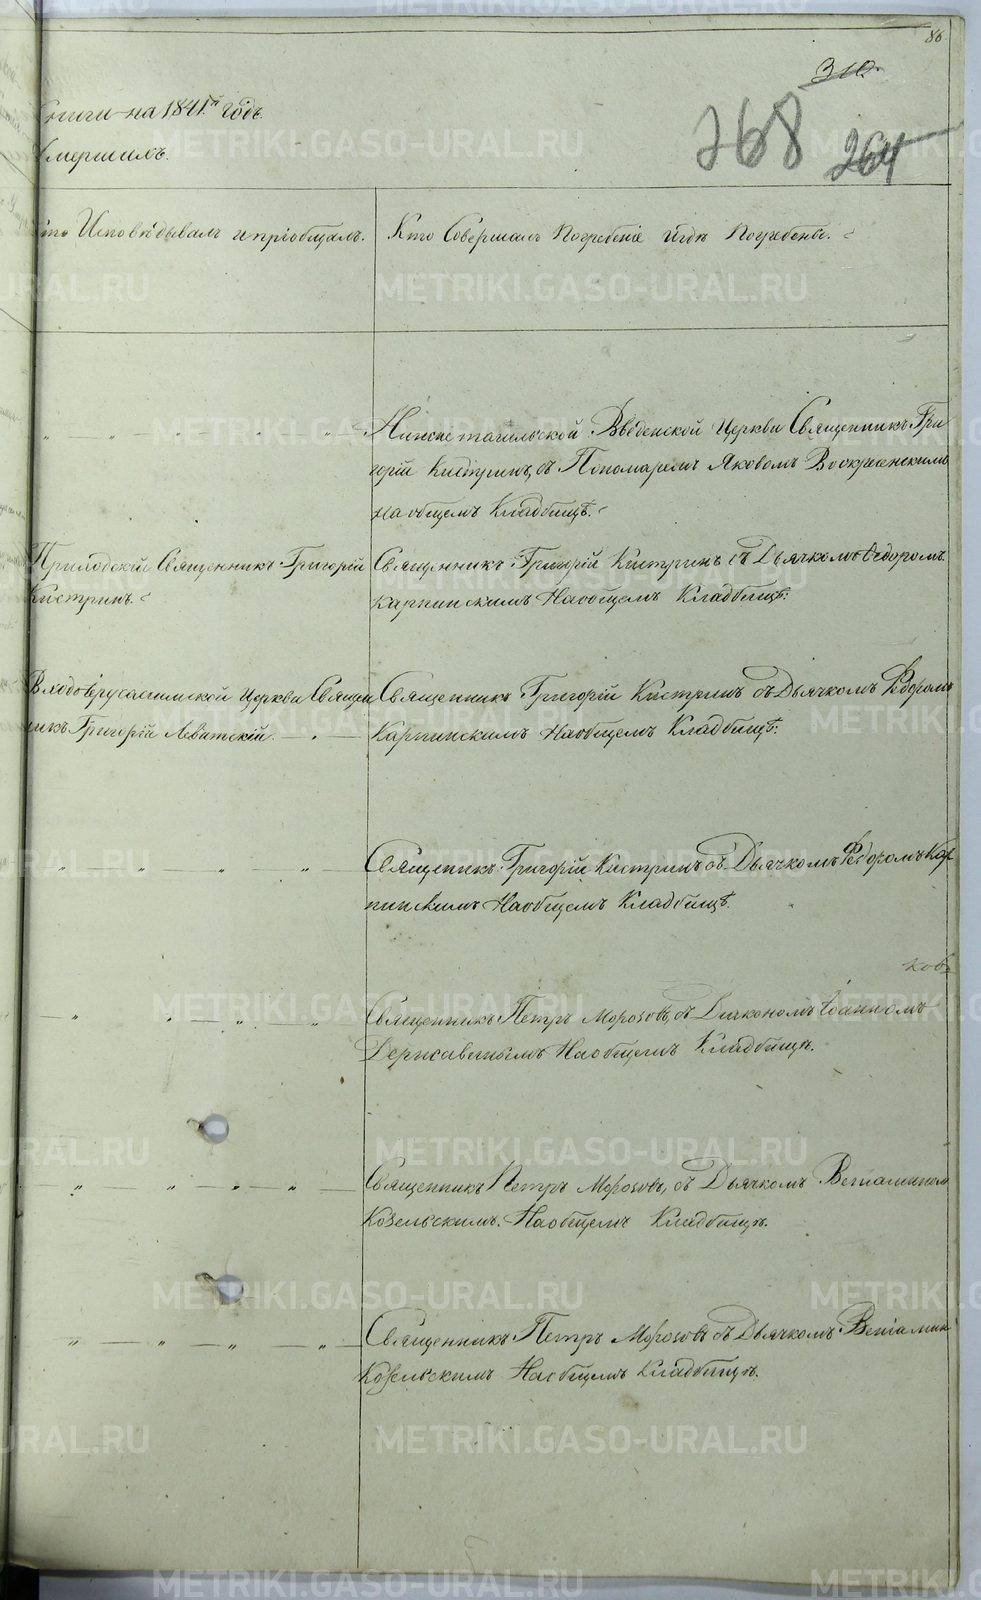 86
310
книги на 1841й годъ.
268 264
Умершихъ.
Кто Исповѣдывалъ и пріобщалъ.
Кто Совершалъ Погребеніе и гдѣ Погребены.
Нижнетагильской Введенской Церкви Священникъ Гри
горій Кистринъ, съ Пономаремъ Яковомъ Воскресенскимъ
на общемъ Кладбищѣ.
Приходскій Священникъ Григорій
Кистринъ.
Священникъ Григорій Кистринъ съ Дьячкомъ Ѳедоромъ
Карпинскимъ На общемъ Кладбищѣ.
Входоіерусалимской Церкви Священ
никъ Григорій Левитскій.
Священникъ Григорій Кистринъ съ Дьячкомъ Ѳедоромъ
Карпинскимъ На общемъ Кладбищѣ.
Священникъ Григорій Кистринъ съ Дьячкомъ Ѳедоромъ Кар
пинскимъ На общемъ Кладбищѣ.
Священникъ Петръ Морозовъ, съ Діакономъ Іоанномъ
Державинымъ На общемъ Кладбищѣ.
Священникъ Петръ Морозовъ, съ Дьячкомъ Веніаминомъ
Козельскимъ. На общемъ Кладбищѣ.
Священникъ Петръ Морозовъ съ Дьячкомъ Веніамин
Козельскимъ На общемъ Кладбищѣ.
METRIKI.GASO-URAL.RU